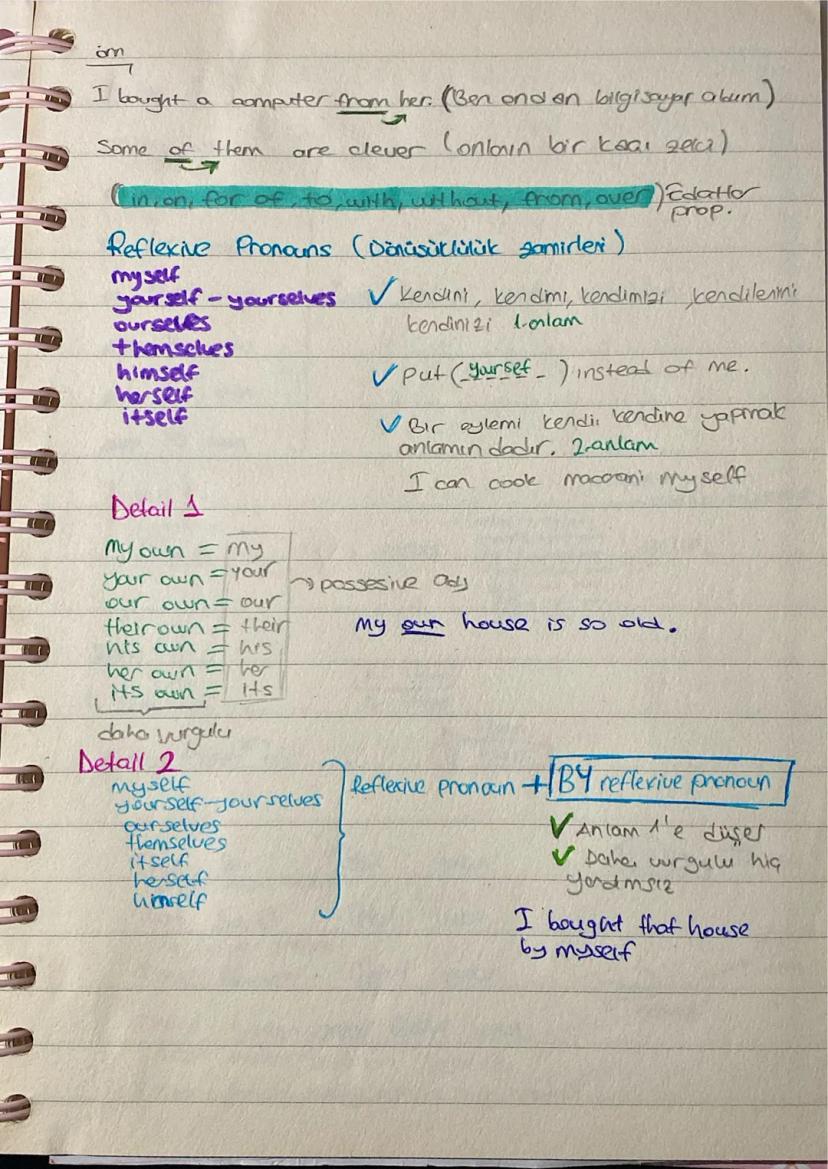 örn
I bought a computer from her. (Ben ondan bilgisayar aldım)
Some of them are clever (onların bir kısmı zeki)
(in, on, for of, to, with, without, from, over) Edatlar
prop.
Reflexive Pronouns (Dönüşlülük zamirleri)
myself
yourself - yourselves
ourselves
themselves
himself
herself
itself
✓ Kendini, kendimi, kendimizi, kendilerini
kendinizi 1.anlam
✓ Put (yoursef _) instead of me.
✓ Bir eylemi kendi kendine yapmak
anlamındadır. 2.anlam
I can cook macoroni myself
Detail 1
My own = my
your own = your
our own = our
their own = their
his own = his
her own = her
its own = its
→ possesive Adj
My own house is so old.
daha vurgulu
Detail 2
myself
yourself-yourselves
ourselves
themselves
itself
herself
himself
Reflexive pronoun + BY reflexive pronoun
✓ Anlam 1'e düşer
✓ Daha vurgulu hiç
yardımsız
I bought that house
by myself